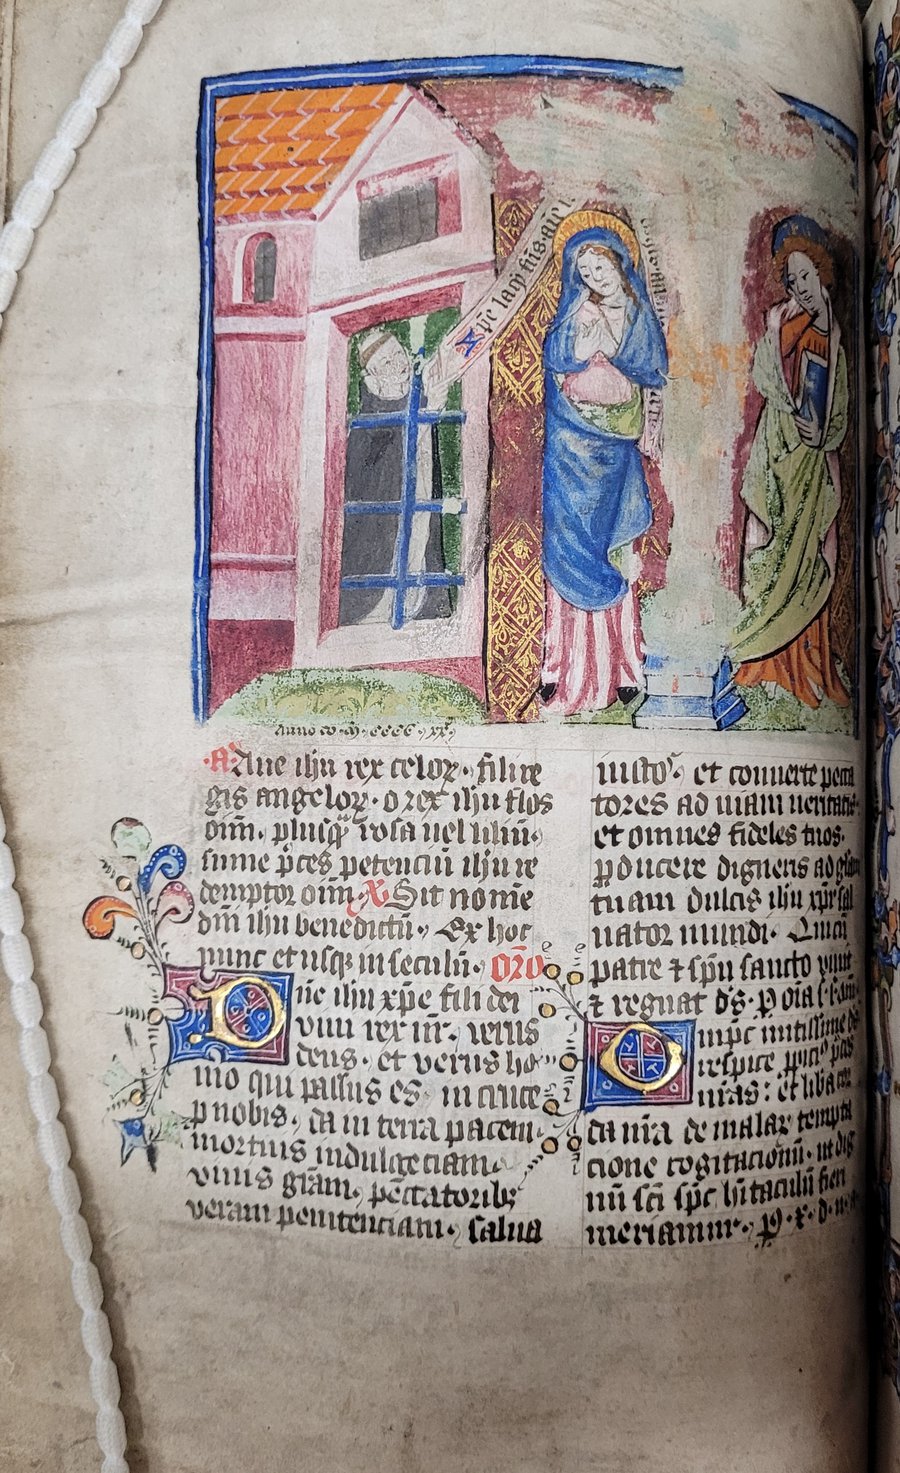 xpe lamh fiis
Anno do· m· cccc · xx·
·A· Aue ihu rex celoꝝ · fili re
gis angeloꝝ · o rex ihu flos
oim · plusqʒ rosa uel liliu ·
sume p̄ces petenciū ihu re
demptor oim ℣ Sit nome
dm̄ ihu benedictū · Ex hoc
nunc et usqʒ in seculū · Oro
Dn̄e ihu xp̄e fili dei
viui rex nr̄ · verus
deus · et verus ho
mo qui passus es · in cruce
p nobis · da in terra pacem ·
mortuis indulgeciam ·
viuis grām · peccatoribʒ
veram penitenciam · salua
iustos · et conuerte pecca
tores ad uiam ueritatis ·
et omnes fideles tuos ·
ꝑducere digneris ad gl̄am
tuam dulcis ihu xp̄e sal
uator mundi · Qui cū
patre ⁊ sp̄u sancto viuit
⁊ regnat d̄s · P oīa
Omp̄c mitissime
respice
nr̄as : et liba
da nr̄a de malaꝝ tempta
cione cogitacionū · ut dig
nū sc̄i sp̄c hītaculū fieri
meriamur · P · x · d · n ·